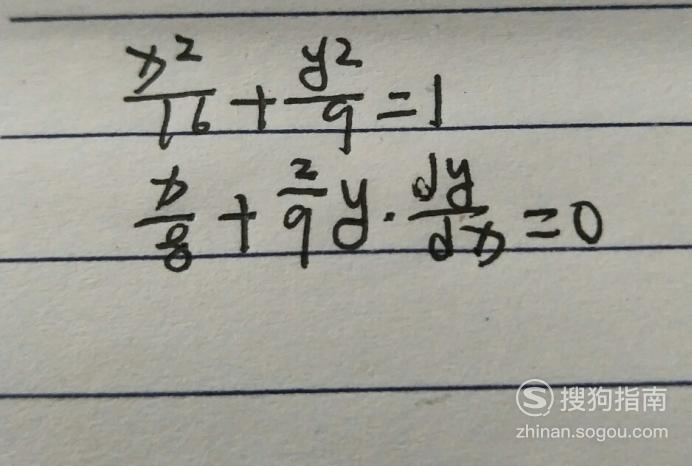 x²/16 + y²/9 = 1
x/8 + 2/9 y · dy/dx = 0
搜狗指南
zhinan.sogou.com